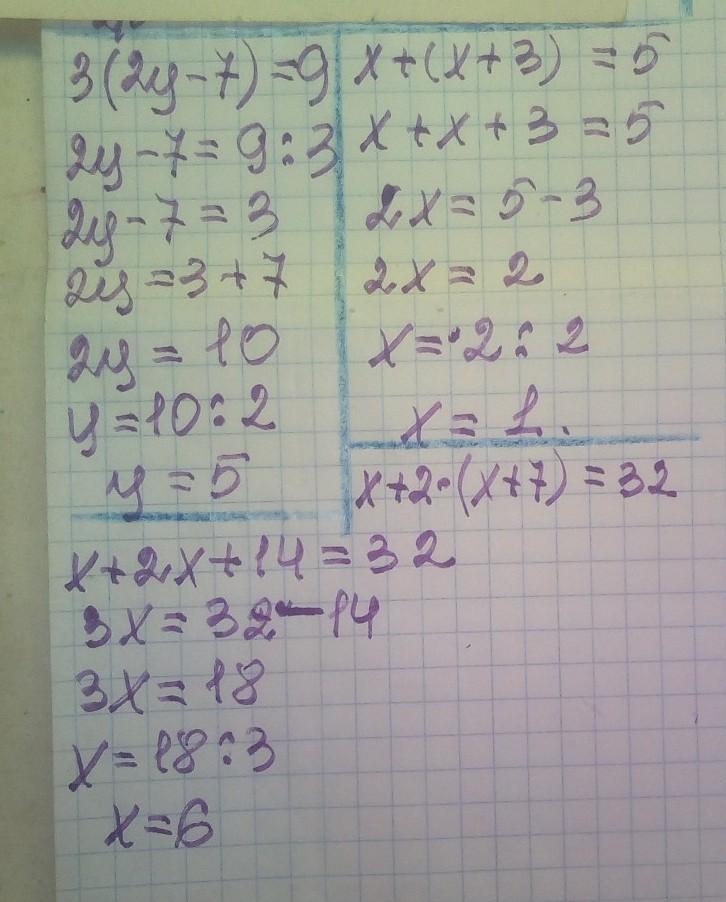 3(2y-7)=9
2y-7=9:3
2y-7=3
2y=3+7
2y=10
y=10:2
y=5
x+(x+3)=5
x+x+3=5
2x=5-3
2x=2
x=2:2
x=1.
x+2·(x+7)=32
x+2x+14=32
3x=32-14
3x=18
x=18:3
x=6